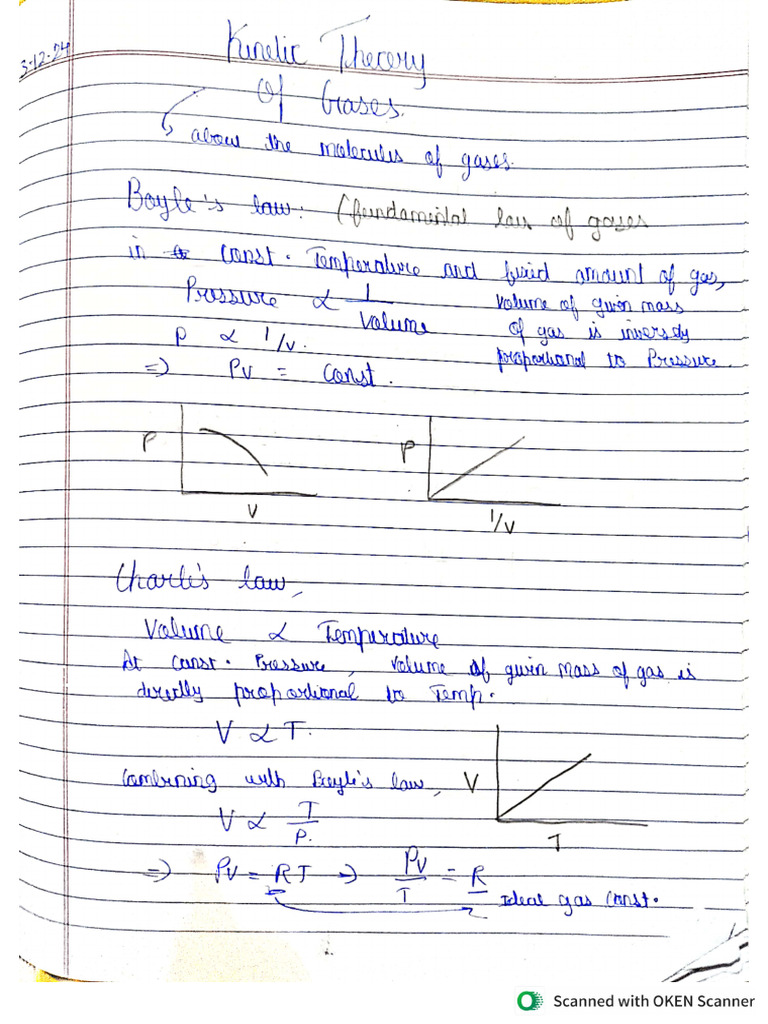 3-12-24
Kinetic Theory
Of Gases.
about the molecules of gases.
Boyle's law: (fundamental law of gases
in const. Temperature and fixed amount of gas,
Pressure ∝ 1/Volume
volume of given mass
of gas is inversly
proportional to Pressure.
P ∝ 1/v.
=> PV = const.
P
V
P
1/V
Charle's law,
Volume ∝ Temperature
At const. Pressure, volume of given mass of gas is
directly proportional to Temp.
V ∝ T.
Combining with Boyle's law,
V
T
V ∝ T/P.
=> PV = RT => PV/T = R
Ideal gas const.
Scanned with OKEN Scanner